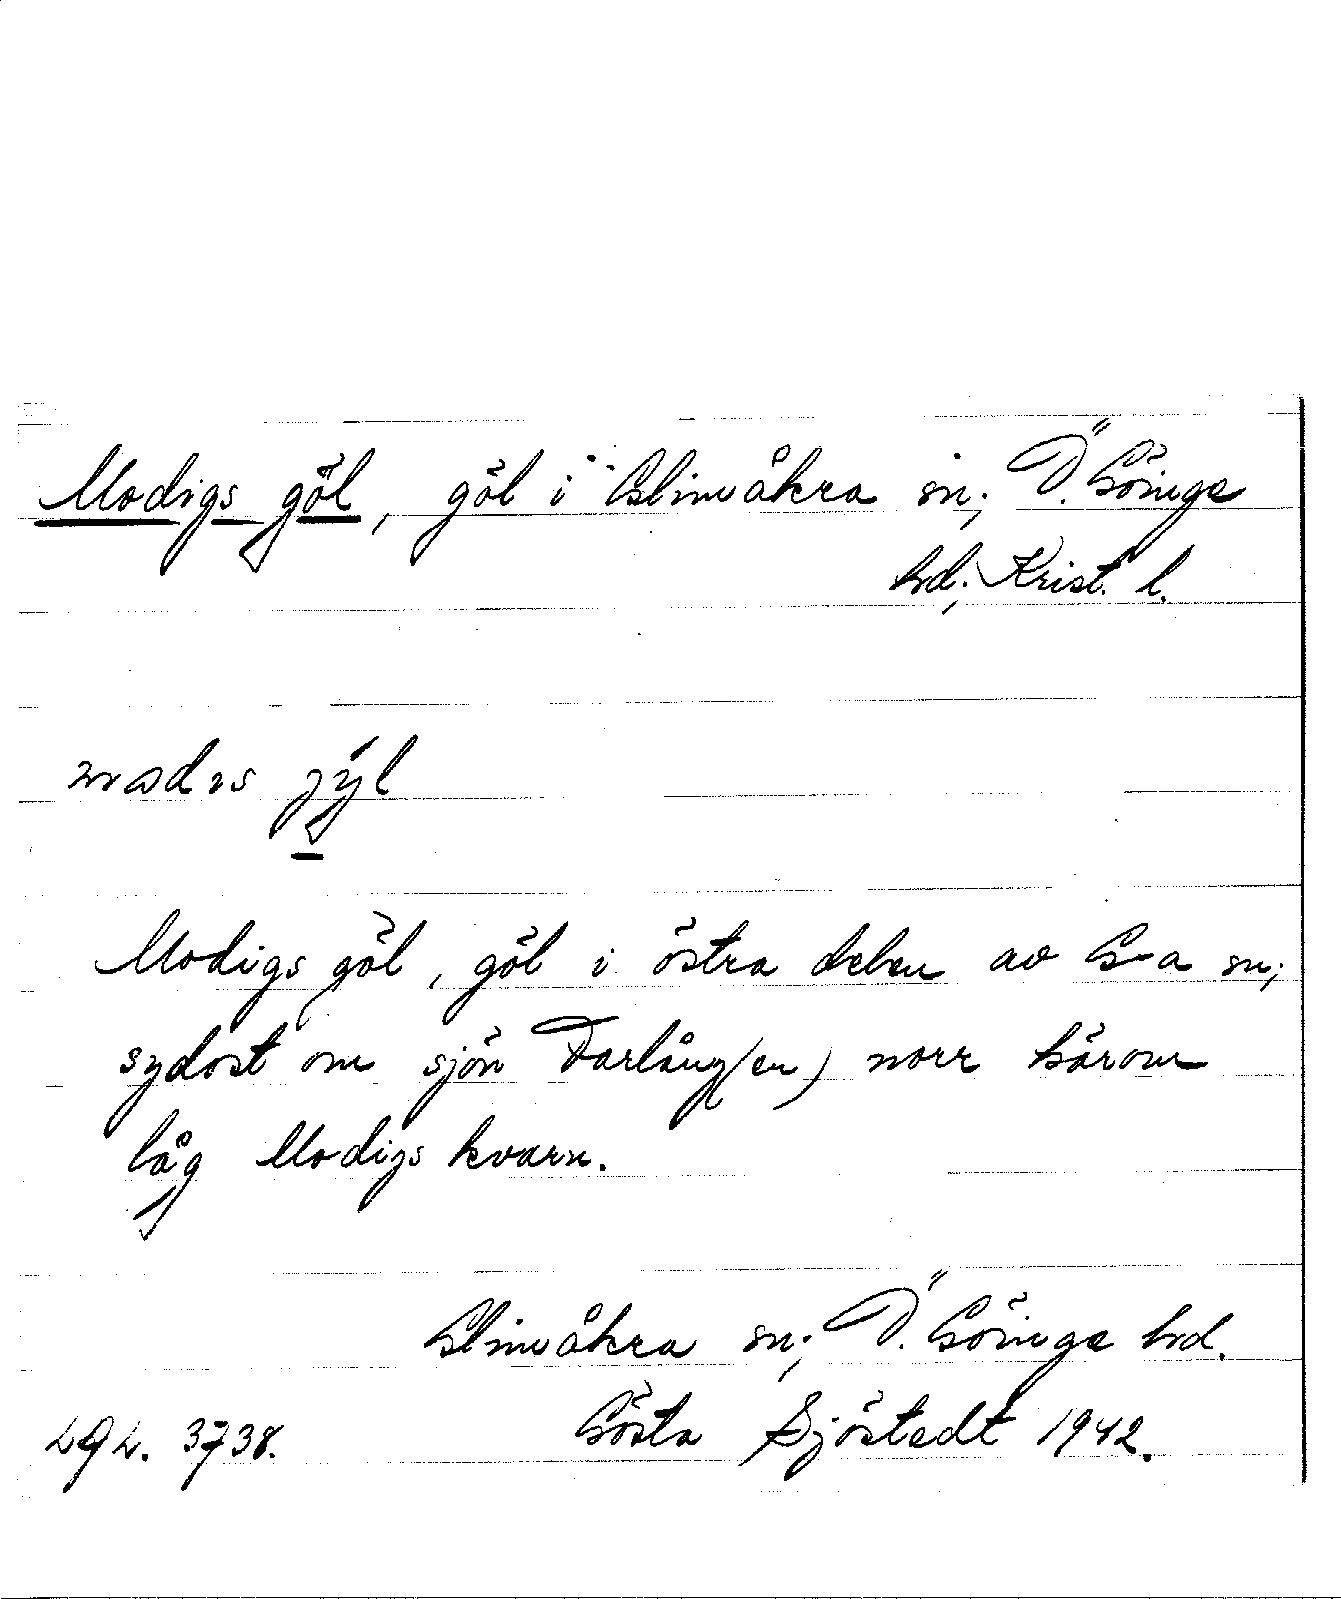 Modigs göl, göl i Glimåkra sn; Ö. Göinge
hd; Krist. l.
modis jýl
Modigs göl, göl i östra delen av G-a sn;
sydost om sjön Farlång(en) norr härom
låg Modigs kvarn.
Glimåkra sn; Ö. Göinge hd.
Gösta Sjöstedt 1942.
LAL. 3738.